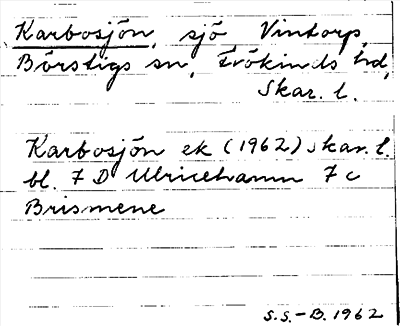 Karbosjön, sjö Vintorp,
Börstigs sn, Frökinds hd,
Skar. l.
Karbosjön ek (1962) Skar. l.
bl. 7 D Ulricehamn 7 c
Brismene
S.S.-B. 1962